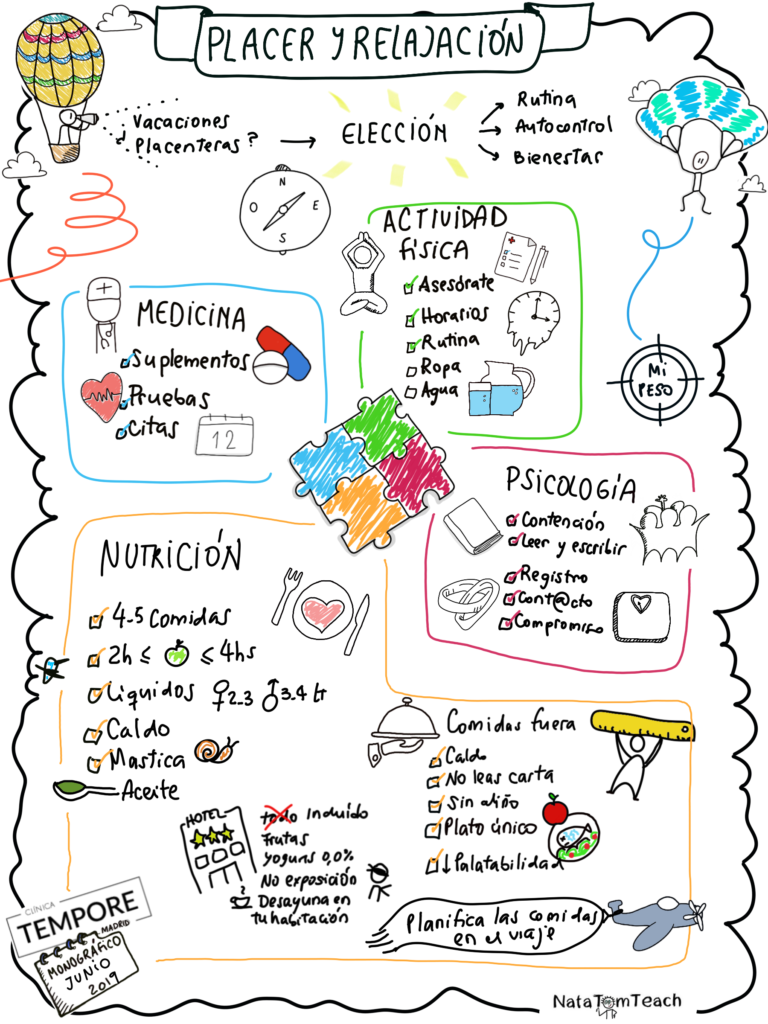 PLACER Y RELAJACIÓN
Vacaciones
Placenteras?
ELECCIÓN
Rutina
Autocontrol
Bienestar
N
O E
S
ACTIVIDAD
física
Asesórate
Horarios
Rutina
Ropa
Agua
MEDICINA
Suplementos
Pruebas
Citas
12
Mi
PESO
PSICOLOGÍA
Contención
Leer y escribir
Registro
Cont@cto
Compromiso
NUTRICIÓN
4-5 Comidas
2h ≤ ≤ 4hs
Líquidos ♀2-3 ♂3-4 lt
Caldo
Mastica
Aceite
Comidas fuera
Caldo
No leas carta
Sin aliño
Plato único
↓Palatabilidad
HOTEL
todo Incluido
Frutas
yogurs 0,0%
No exposición
Desayuna en
tu habitación
Planifica las comidas
en el viaje
CLÍNICA
TEMPORE
MADRID
MONOGRÁFICO
JUNIO
2019
NataTomTeach